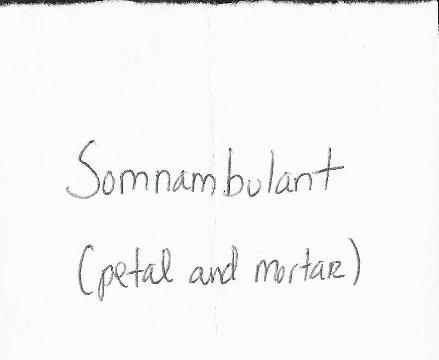 Somnambulant
(petal and mortar)